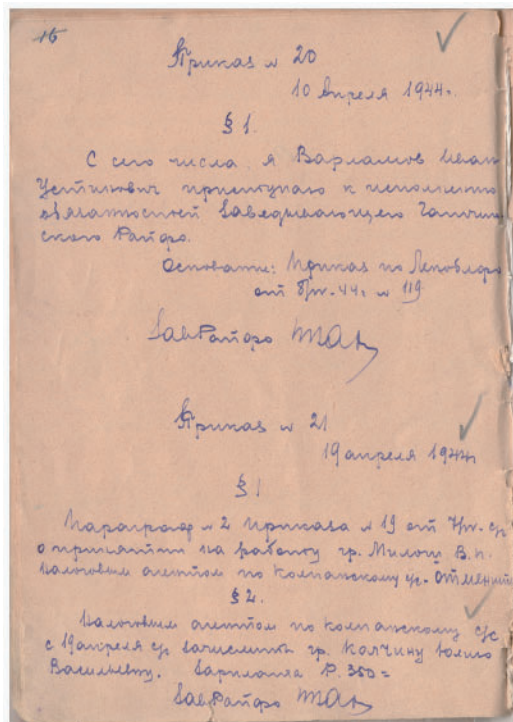 16
Приказ № 20
10 Апреля 1944г.
§ 1.
С сего числа я Варламов Иван
Устинович приступаю к исполнению
обязанностей Заведывающего Гатчин-
ского Райфо.
Основание: Приказ по Леноблфо
от 8/IV-44г. № 119
ЗавРайфо
Приказ № 21
19 апреля 1944г.
§ 1
Параграф № 2 Приказа № 19 от 7/IV-с/г
о принятии на работу гр. Милош В.П.
налоговым агентом по Колпанскому с/с- отменить
§ 2.
Налоговым агентом по Колпанскому с/с
с 19 апреля с/г зачислить гр. Колчину Юлию
Васильевну. Зарплата Р. 350=
ЗавРайфо